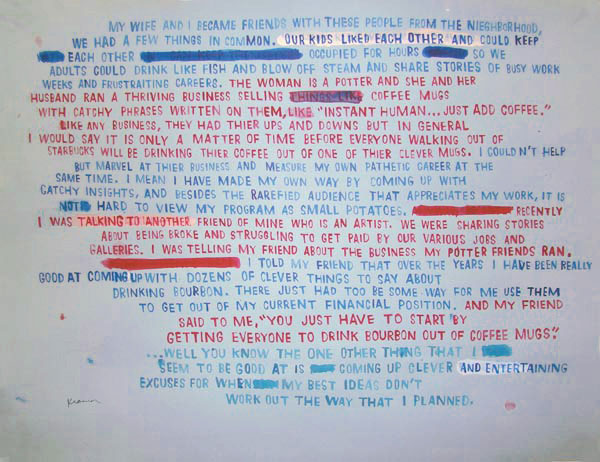 MY WIFE AND I BECAME FRIENDS WITH THESE PEOPLE FROM THE NIEGHBORHOOD,
WE HAD A FEW THINGS IN COMMON. OUR KIDS LIKED EACH OTHER AND COULD KEEP
EACH OTHER OCCUPIED FOR HOURS SO WE
ADULTS COULD DRINK LIKE FISH AND BLOW OFF STEAM AND SHARE STORIES OF BUSY WORK
WEEKS AND FRUSTRAITING CAREERS. THE WOMAN IS A POTTER AND SHE AND HER
HUSBAND RAN A THRIVING BUSINESS SELLING THINGS LIKE COFFEE MUGS
WITH CATCHY PHRASES WRITTEN ON THEM, LIKE "INSTANT HUMAN... JUST ADD COFFEE."
LIKE ANY BUSINESS, THEY HAD THIER UPS AND DOWNS BUT IN GENERAL
I WOULD SAY IT IS ONLY A MATTER OF TIME BEFORE EVERYONE WALKING OUT OF
STARBUCKS WILL BE DRINKING THIER COFFEE OUT OF ONE OF THIER CLEVER MUGS. I COULDN'T HELP
BUT MARVEL AT THIER BUSINESS AND MEASURE MY OWN PATHETIC CAREER AT THE
SAME TIME. I MEAN I HAVE MADE MY OWN WAY BY COMING UP WITH
CATCHY INSIGHTS, AND BESIDES THE RAREFIED AUDIENCE THAT APPRECIATES MY WORK, IT IS
NOT HARD TO VIEW MY PROGRAM AS SMALL POTATOES. RECENTLY
I WAS TALKING TO ANOTHER FRIEND OF MINE WHO IS AN ARTIST. WE WERE SHARING STORIES
ABOUT BEING BROKE AND STRUGGLING TO GET PAID BY OUR VARIOUS JOBS AND
GALLERIES. I WAS TELLING MY FRIEND ABOUT THE BUSINESS MY POTTER FRIENDS RAN.
I TOLD MY FRIEND THAT OVER THE YEARS I HAVE BEEN REALLY
GOOD AT COMING UP WITH DOZENS OF CLEVER THINGS TO SAY ABOUT
DRINKING BOURBON. THERE JUST HAD TOO BE SOME WAY FOR ME USE THEM
TO GET OUT OF MY CURRENT FINANCIAL POSITION. AND MY FRIEND
SAID TO ME, "YOU JUST HAVE TO START BY
GETTING EVERYONE TO DRINK BOURBON OUT OF COFFEE MUGS."
...WELL YOU KNOW THE ONE OTHER THING THAT I
SEEM TO BE GOOD AT IS COMING UP CLEVER AND ENTERTAINING
EXCUSES FOR WHEN MY BEST IDEAS DON'T
WORK OUT THE WAY THAT I PLANNED.